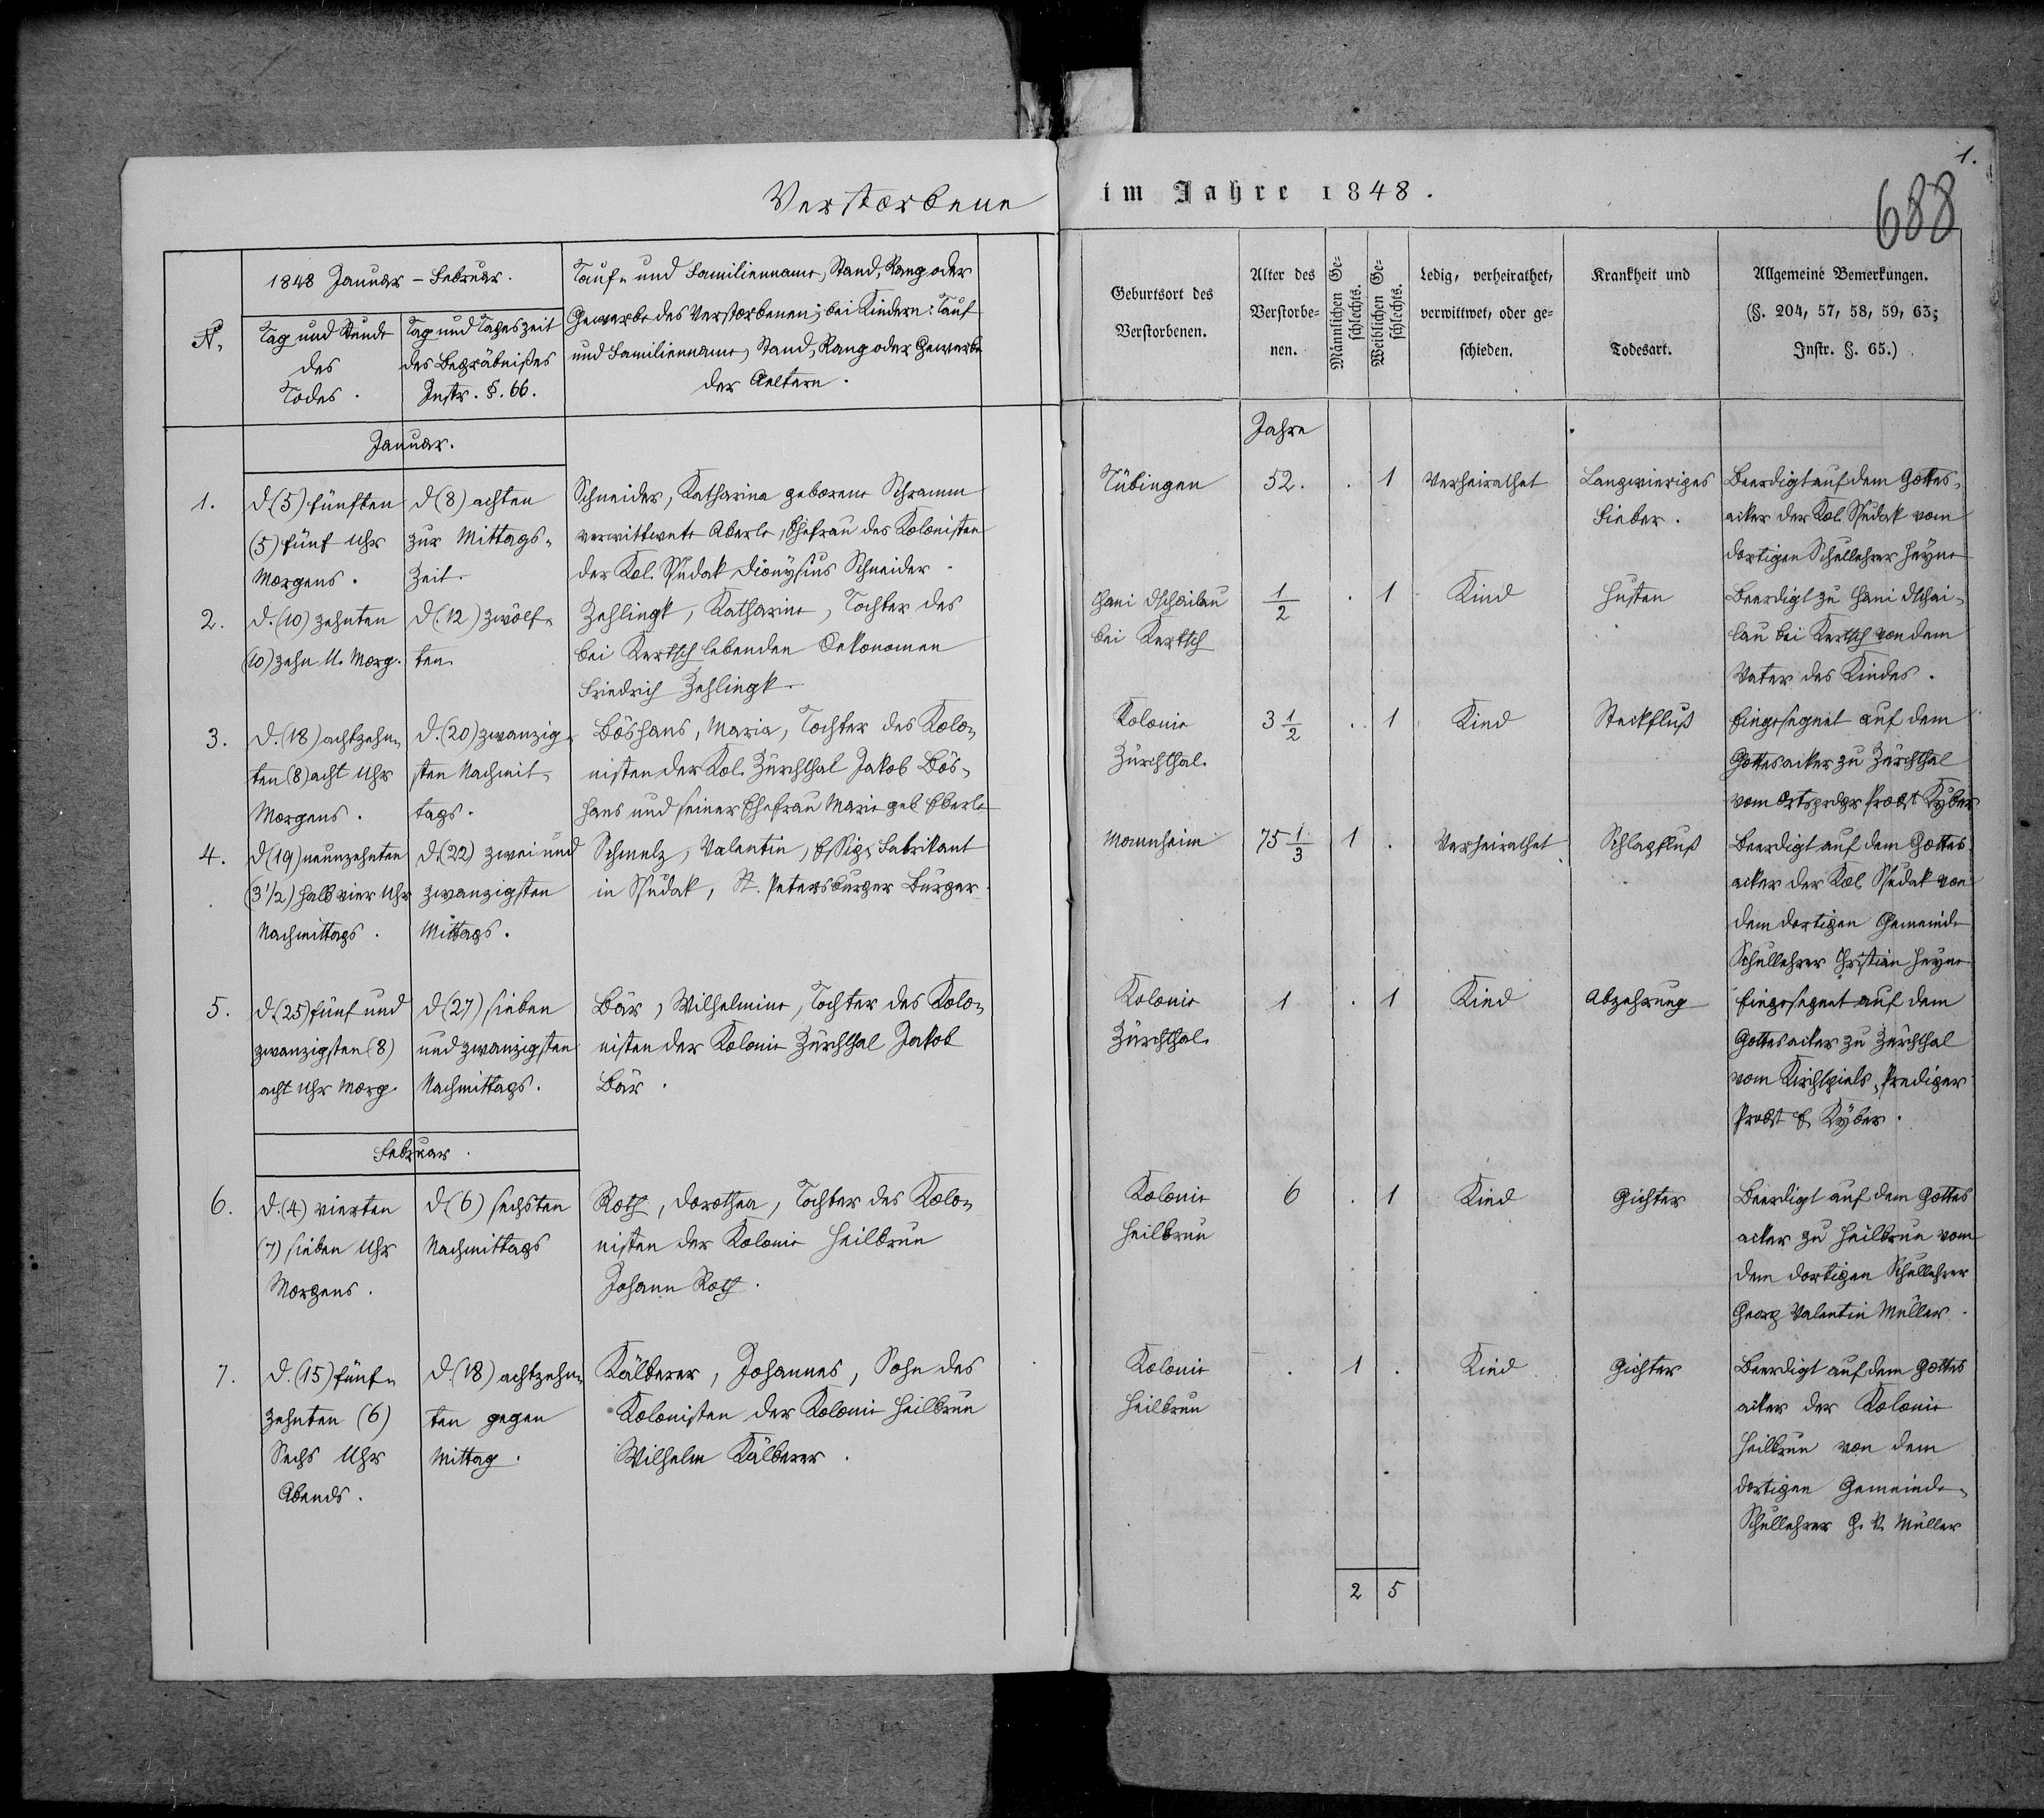 1.
688
Verstorbene im Jahre 1848.
N.
1848 Januar – Februar.
Tag und Stunde
des
Todes.
Tag und Tageszeit
des Begräbnißes
Instr. §. 66.
Tauf- und Familienname, Stand, Rang oder
Gewerbe des Verstorbenen; bei Kindern: Tauf
und Familienname, Stand, Rang oder Gewerbe
der Aeltern.
Geburtsort des
Verstorbenen.
Alter des
Verstorbe-
nen.
Männlichen Ge-
schlechts.
Weiblichen Ge-
schlechts.
Ledig, verheirathet,
verwittwet, oder ge-
schieden.
Krankheit und
Todesart.
Allgemeine Bemerkungen.
(§. 204, 57, 58, 59, 63;
Instr. §. 65.)
Januar.
Jahre
1.
d (5) fünften
(5) fünf Uhr
Morgens.
d (8) achten
zur Mittags-
Zeit.
Schneider, Katharina geborene Schramm
verwittwete Aberle, Ehefrau des Kolonisten
der Kol. Sudak Dionysius Schneider.
Tübingen
52.
. 1
Verheirathet
Langwieriges
Fieber.
Beerdigt auf dem Gottes-
acker der Kol. Sudak vom
dortigen Schullehrer Heyne
2.
d. (10) zehnten
(10) zehn U. Morg.
d. (12) zwölf-
ten
Zehlingk, Katharine, Tochter des
bei Kertsch lebenden Oekonomen
Friedrich Zehlingk.
Hani Dschailau
bei Kertsch
1/2
. 1
Kind
Husten
Beerdigt zu Hani Dschai-
lau bei Kertsch von dem
Vater des Kindes.
3.
d. (18) achtzehn-
ten (8) acht Uhr
Morgens.
d. (20) zwanzig-
sten Nachmit-
tags.
Böshans, Maria, Tochter des Kolo-
nisten der Kol. Zürchthal Jakob Bös-
hans und seiner Ehefrau Marie geb Eberle
Kolonie
Zürchthal.
3 1/2
. 1
Kind
Steckfluß
Eingesegnet auf dem
Gottesacker zu Zürchthal
vom Ortsprdgr Probst Kyber
4.
d (19) neunzehnten
(3 1/2) halb vier Uhr
Nachmittags.
d. (22) zwei und
zwanzigsten
Mittags.
Schmelz, Valentin, Essig-Fabrikant
in Sudak, St. Petersburger Bürger.
Mannheim
75 1/3
1 .
Verheirathet
Schlagfluß
Beerdigt auf dem Gottes
acker der Kol. Sudak von
dem dortigen Gemeinde
Schullehrer Christian Heyne
5.
d (25) fünf und
zwanzigsten (8)
acht Uhr Morg.
d (27) sieben
und zwanzigsten
Nachmittags.
Bär, Wilhelmine, Tochter des Kolo-
nisten der Kolonie Zürchthal Jakob
Bär.
Kolonie
Zürchthal.
1
. 1
Kind
Abzehrung
Eingesegnet auf dem
Gottesacker zu Zürchthal
vom Kirchspiels-Prediger
Probst E. Kyber.
Februar.
6.
d. (4) vierten
(7) sieben Uhr
Morgens.
d (6) sechsten
Nachmittags
Roth, Dorothea, Tochter des Kolo-
nisten der Kolonie Heilbrun
Johann Roth.
Kolonie
Heilbrun
6
. 1
Kind
Gichter
Beerdigt auf dem Gottes
acker zu Heilbrun vom
dem dortigen Schullehrer
Georg Valentin Müller.
7.
d. (15) fünf-
zehnten (6)
Sechs Uhr
Abends.
d. (18) achtzehn-
ten gegen
Mittag.
Kälberer, Johannes, Sohn des
Kolonisten der Kolonie Heilbrun
Wilhelm Kälberer.
Kolonie
Heilbrun
.
1 .
Kind
Gichter
Beerdigt auf dem Gottes
acker der Kolonie
Heilbrun von dem
dortigen Gemeinde-
Schullehrer G. V. Müller
2 5